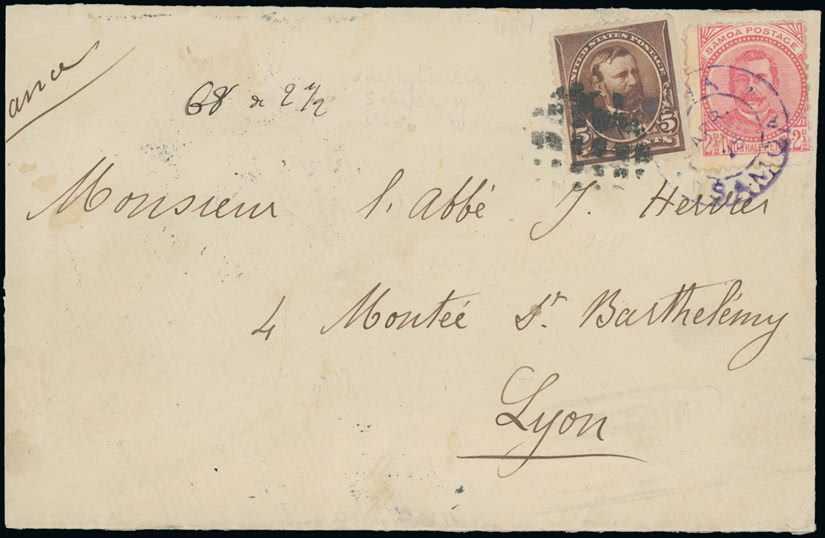 ance
68 de 2 1/2
UNITED STATES POSTAGE
5 CENTS 5
SAMOA POSTAGE
2½D TWO HALFPENCE 2½D
Monsieur l'abbé J. Hervier
4 Montée St. Barthelémy
Lyon